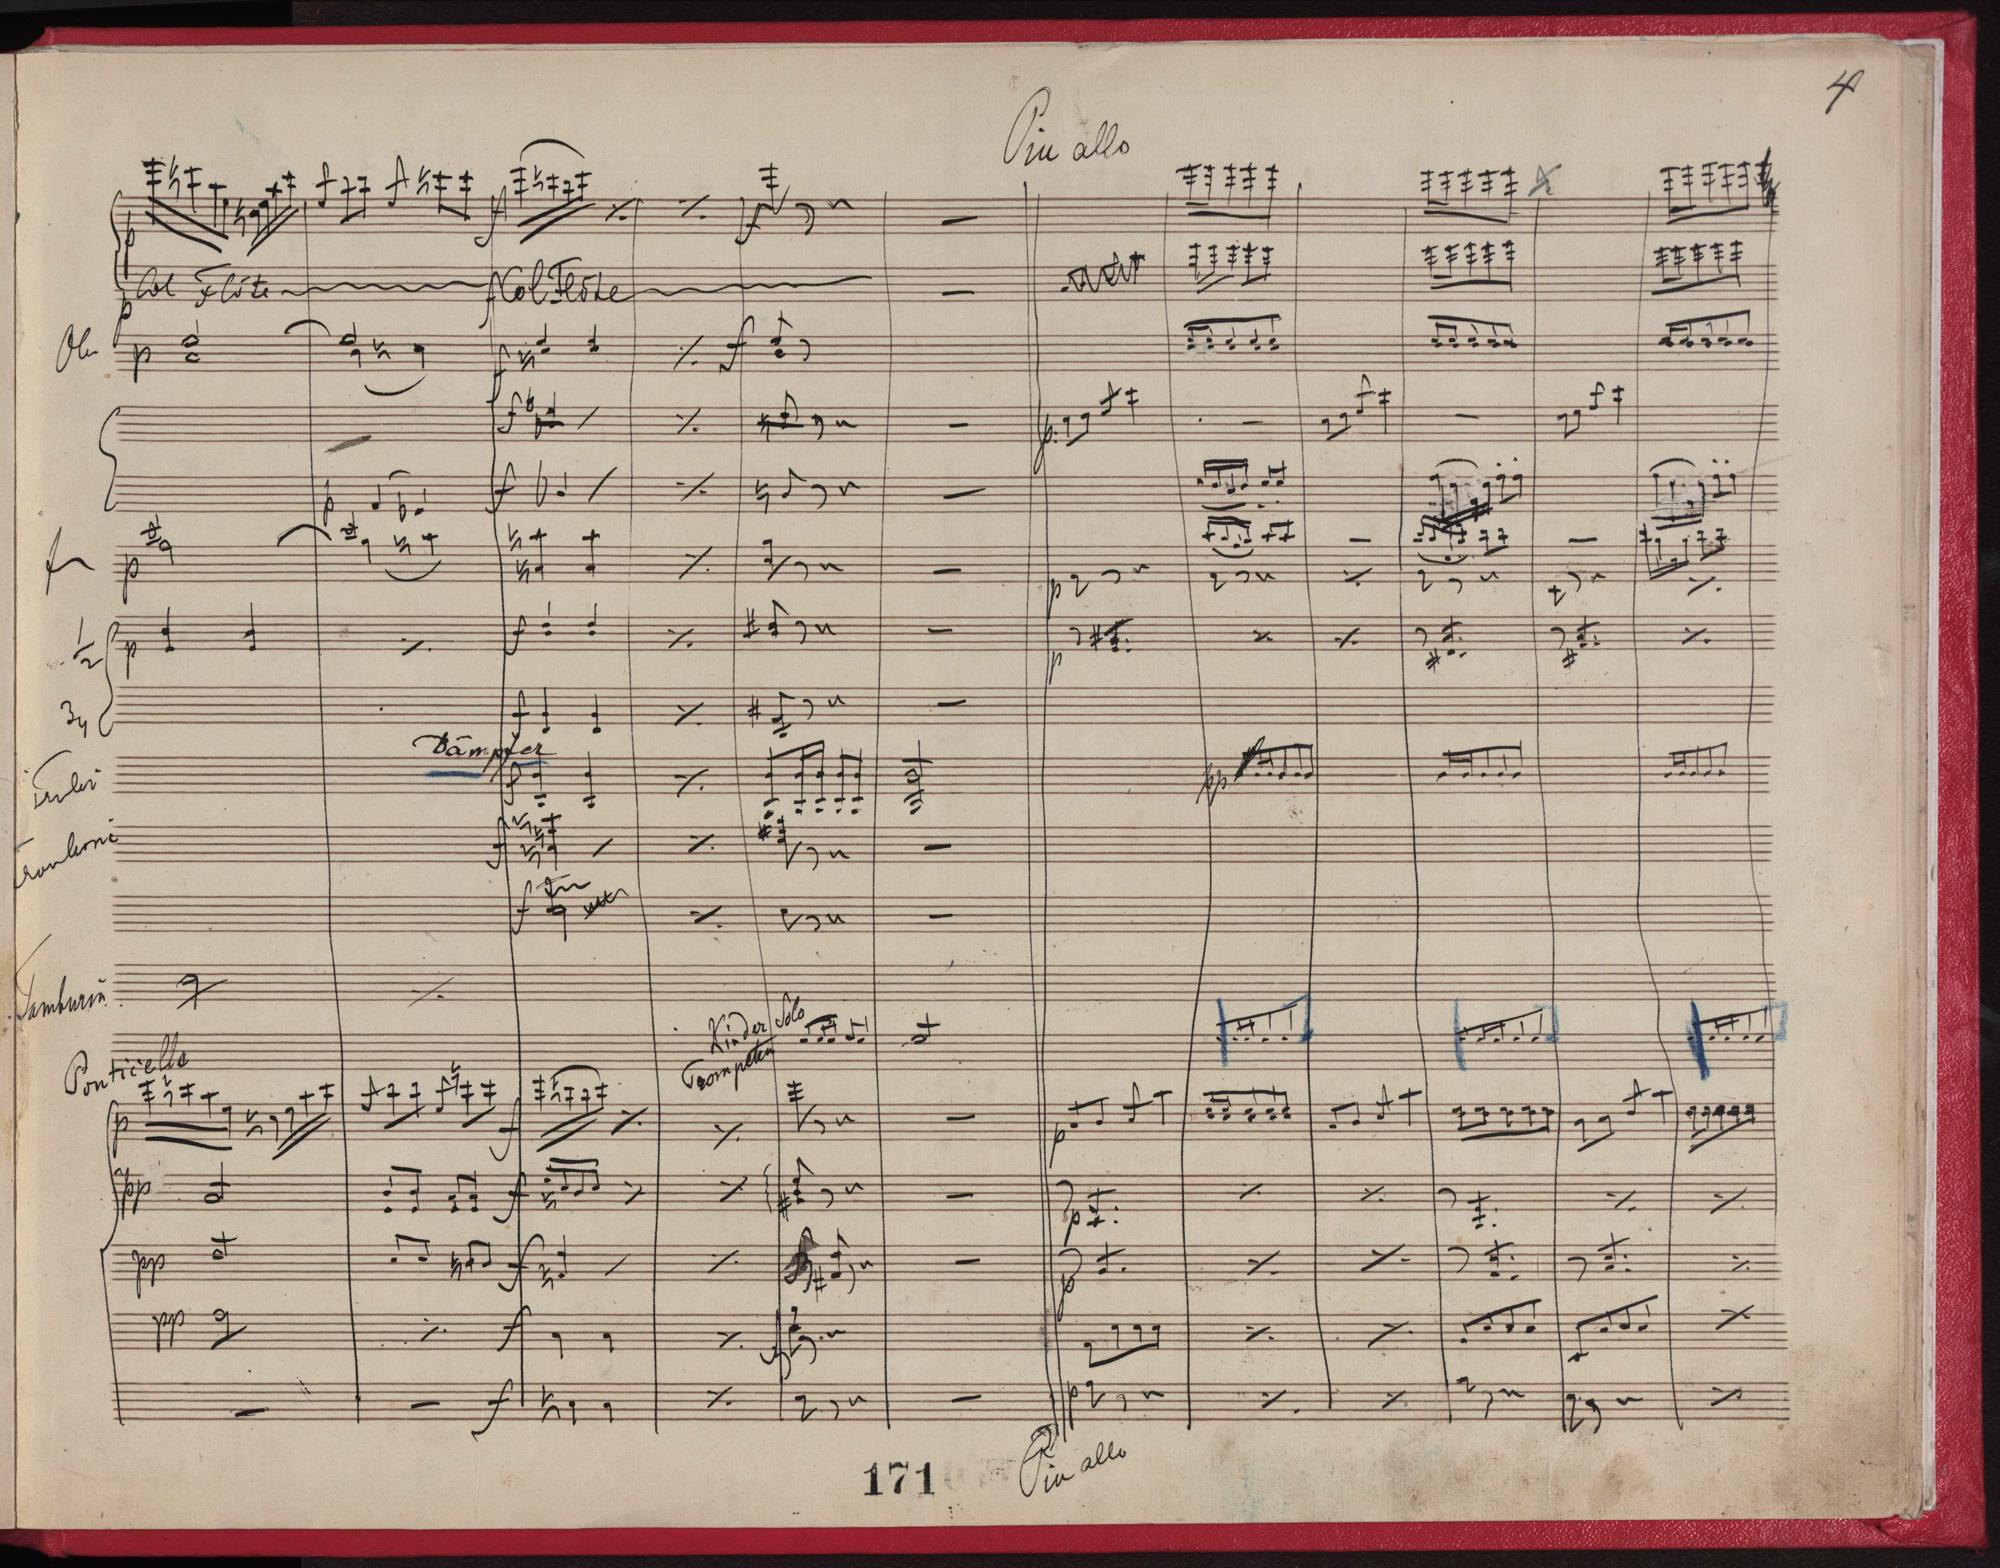 4
Piu allo
Col Flöte Col Flöte
Ob
p
f
1
2
3
4
Dämpfer
pp
Tromboni
Tamburin
Kinder Solo
Trompeten
Ponticello
p
pp
pp
pp
Piu allo
171